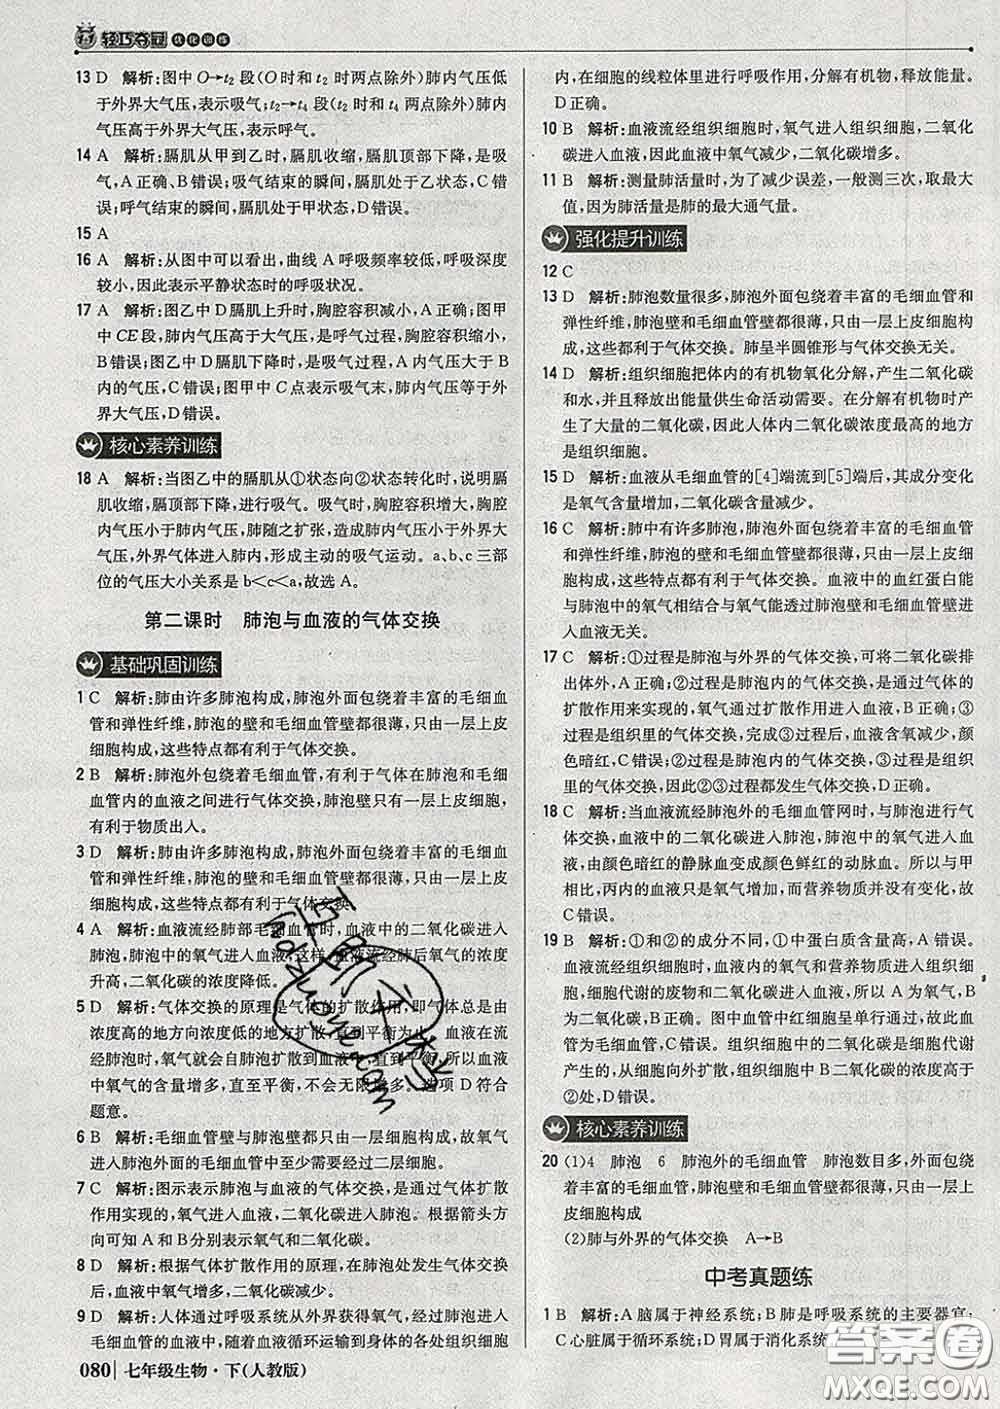 轻巧夺冠 优化训练
13 D 解析:图中O→t₂段(O时和t₂时两点除外)肺内气压低
于外界大气压,表示吸气;t₂→t₄段(t₂时和t₄两点除外)肺内
气压高于外界大气压,表示呼气。
14 A 解析:膈肌从甲到乙时,膈肌收缩,膈肌顶部下降,是吸
气,A正确、B错误;吸气结束的瞬间,膈肌处于乙状态,C错
误;呼气结束的瞬间,膈肌处于甲状态,D错误。
15 A
16 A 解析:从图中可以看出,曲线A呼吸频率较低,呼吸深度
较小,因此表示平静状态时的呼吸状况。
17 A 解析:图乙中D膈肌上升时,胸腔容积减小,A正确;图甲
中CE段,肺内气压高于大气压,是呼气过程,胸腔容积缩小,
B错误;图乙中D膈肌下降时,是吸气过程,A内气压大于B
内的气压,C错误;图甲中C点表示吸气末,肺内气压等于外
界大气压,D错误。
核心素养训练
18 A 解析:当图乙中的膈肌从①状态向②状态转化时,说明膈
肌收缩,膈顶部下降,进行吸气。吸气时,胸腔容积增大,胸腔
内气压小于肺内气压,肺随之扩张,造成肺内气压小于外界大
气压,外界气体进入肺内,形成主动的吸气运动。a、b、c三部
位的气压大小关系是b<c<a,故选A。
第二课时 肺泡与血液的气体交换
基础巩固训练
1 C 解析:肺由许多肺泡构成,肺泡外面包绕着丰富的毛细血
管和弹性纤维,肺泡的壁和毛细血管壁都很薄,只由一层上皮
细胞构成,这些特点都有利于气体交换。
2 B 解析:肺泡外包绕着毛细血管,有利于气体在肺泡和毛细
血管内的血液之间进行气体交换,肺泡壁只有一层上皮细胞,
有利于物质出入。
3 D 解析:肺由许多肺泡构成,肺泡外面包绕着丰富的毛细血
管和弹性纤维,肺泡的壁和毛细血管壁都很薄,只由一层上皮
细胞构成,这些特点都有利于气体交换。
4 A 解析:血液流经肺部毛细血管时,血液中的二氧化碳进入
肺泡,肺泡中的氧气进入血液,这样,血液流经肺后氧气的浓度
升高,二氧化碳的浓度降低。
5 D 解析:气体交换的原理是气体的扩散作用,即气体总是由
浓度高的地方向浓度低的地方扩散,直到平衡为止。血液在流
经肺泡时,氧气就会自肺泡扩散到血液中,直到平衡,所以血液
中氧气的含量增多,直至平衡,不会无限增多。选项D符合
题意。
6 B 解析:毛细血管壁与肺泡壁都只由一层细胞构成,故氧气
进入肺泡外面的毛细血管中至少需要经过二层细胞。
7 C 解析:图示表示肺泡与血液的气体交换,是通过气体扩散
作用实现的,氧气进入血液,二氧化碳进入肺泡。根据箭头方
向可知A和B分别表示氧气和二氧化碳。
8 D 解析:根据气体扩散作用的原理,在肺泡处发生气体交换
后,血液中氧气增多,二氧化碳减少。
9 D 解析:人体通过呼吸系统从外界获得氧气,氧气通过肺进入
毛细血管的血液中,随着血液循环运输到身体的各处组织细胞
080 七年级生物·下(人教版)
内,在细胞的线粒体里进行呼吸作用,分解有机物,释放能量。
D正确。
10 B 解析:血液流经组织细胞时,氧气进入组织细胞,二氧化
碳进入血液,因此血液中氧气减少,二氧化碳增多。
11 B 解析:测量肺活量时,为了减少误差,一般测三次,取最大
值,因为肺活量是肺的最大通气量。
强化提升训练
12 C
13 D 解析:肺泡数量很多,肺泡外面包绕着丰富的毛细血管和
弹性纤维,肺泡壁和毛细血管壁都很薄,只由一层上皮细胞构
成,这些都利于气体交换。肺呈半圆锥形与气体交换无关。
14 D 解析:组织细胞把体内的有机物氧化分解,产生二氧化碳
和水,并且释放出能量供生命活动需要。在分解有机物时产
生了大量的二氧化碳,因此人体内二氧化碳浓度最高的地方
是组织细胞。
15 D 解析:血液从毛细血管的[4]端流到[5]端后,其成分变化
是氧气含量增加,二氧化碳含量减少。
16 C 解析:肺中有许多肺泡,肺泡外面包绕着丰富的毛细血管
和弹性纤维,肺泡的壁和毛细血管壁都很薄,只由一层上皮细
胞构成,这些都利于气体交换。血液中的血红蛋白能
与肺泡中的氧气相结合与氧气能透过肺泡壁和毛细血管壁进
入血液无关。
17 C 解析:①过程是肺泡与外界的气体交换,可将二氧化碳排
出体外,A正确;②过程是肺泡内的气体交换,是通过气体的
扩散作用来实现的,氧气通过扩散作用进入血液,B正确;③
过程是组织里的气体交换,完成③过程后,血液含氧减少,颜
色暗红,C错误;②过程是肺泡内的气体交换,③过程是组织
里的气体交换,因此②③过程都发生气体交换,D正确。
18 C 解析:当血液流经肺泡外的毛细血管网时,与肺泡进行气
体交换,血液中的二氧化碳进入肺泡,肺泡中的氧气进入血
液,由颜色暗红的静脉血变成颜色鲜红的动脉血。所以与甲
相比,丙内的血液只是氧气增加,而营养物质并没有变化,故
C错误。
19 B 解析:①和②的成分不同,①中蛋白质含量高,A错误。
血液流经组织细胞时,血液内的氧气和营养物质进入组织细
胞,细胞代谢的废物和二氧化碳进入血液,所以A为氧气,B
为二氧化碳,B正确。图中血管中红细胞呈单行通过,故此血
管为毛细血管,C错误。组织细胞中的二氧化碳是细胞代谢
产生的,从细胞向外扩散,因此图中B二氧化碳的浓度最高于
②处,D错误。
核心素养训练
20 (1)4 肺泡 6 肺泡外的毛细血管 肺泡数目多,外面包绕
着丰富的毛细血管,肺泡壁和毛细血管壁都很薄,只由一层上
皮细胞构成
(2)肺与外界的气体交换 A→B
中考真题练
1 B 解析:A脑属于神经系统;B肺是呼吸系统的主要器官;
C心脏属于循环系统;D胃属于消化系统
答案圈
MXQE.COM